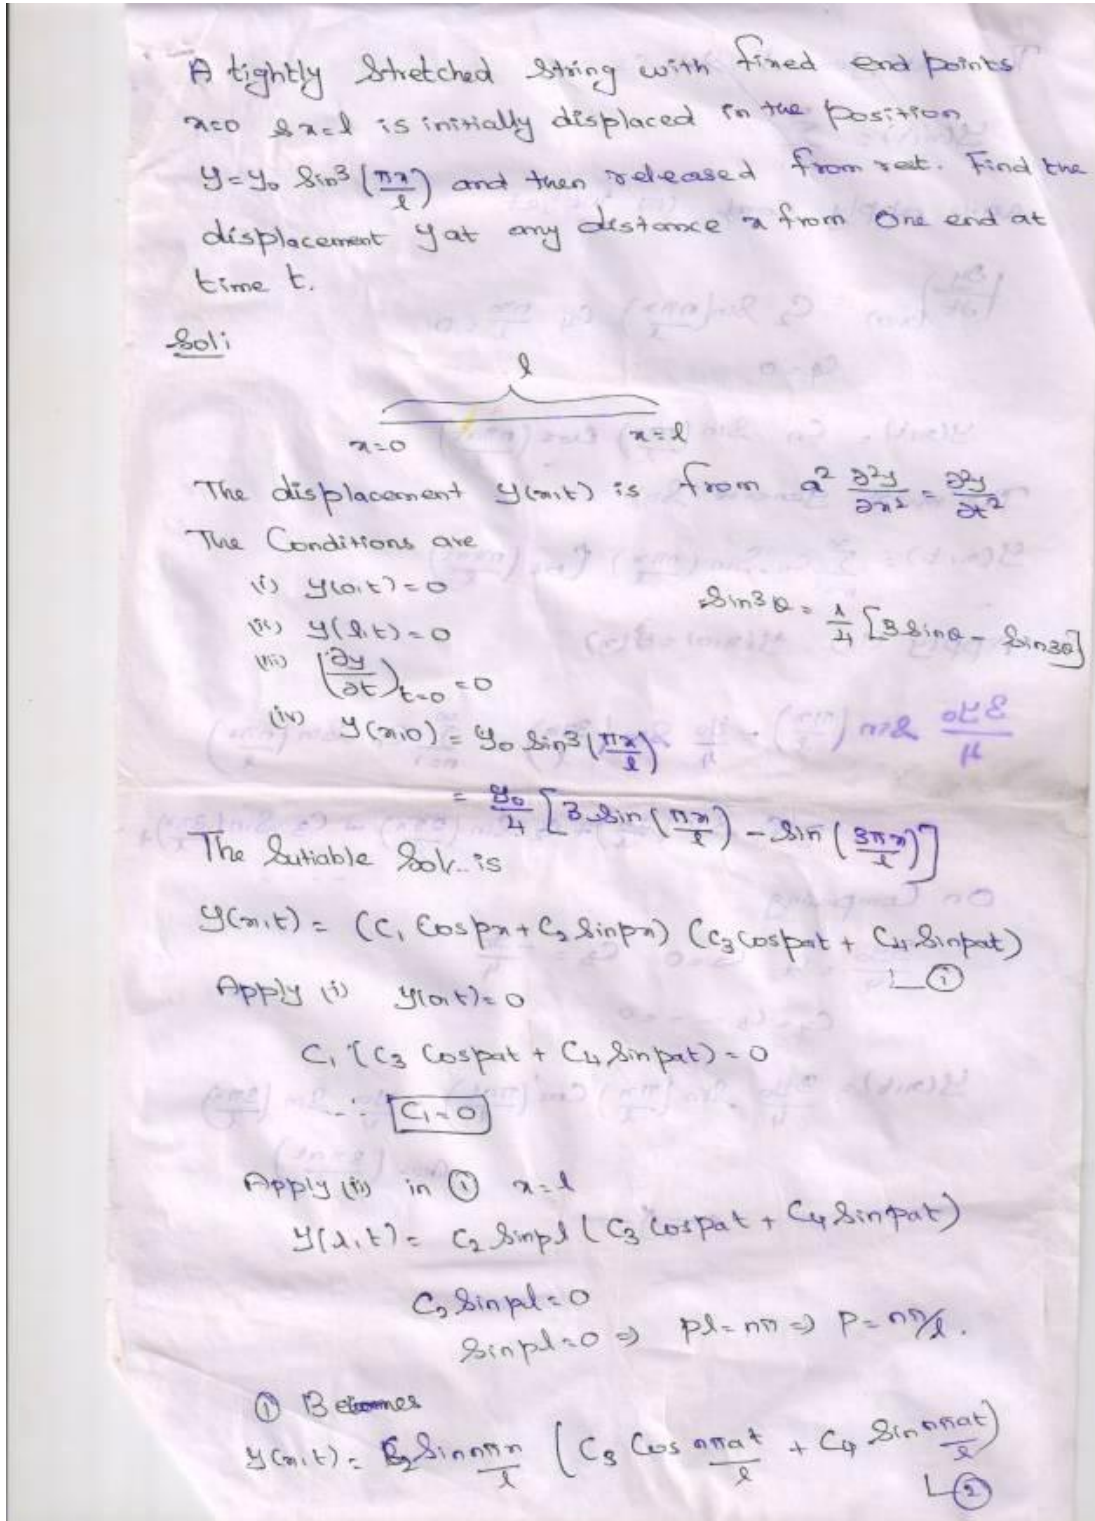 A tightly Stretched String with fixed end points
x=0 & x=l is initially displaced in the Position
y=y₀ Sin³(πx/l) and then released from rest. Find the
displacement y at any distance x from one end at
time t.
Sol:
l
x=0 x=l
The displacement y(x,t) is from a² ∂²y/∂x² = ∂²y/∂t²
The Conditions are
(i) y(0,t)=0
(ii) y(l,t)=0
Sin³θ = 1/4 [3 Sinθ - Sin3θ]
(iii) (∂y/∂t)t=0 =0
(iv) y(x,0) = y₀ Sin³(πx/l)
= y₀/4 [3 Sin(πx/l) - Sin(3πx/l)]
The Sutiable Sol. is
y(x,t) = (C₁ Cospx + C₂ Sinpx) (C₃ Cospat + C₄ Sinpat)
①
Apply (i) y(0,t)=0
C₁ (C₃ Cospat + C₄ Sinpat) = 0
∴ C₁=0
Apply (ii) in ① x=l
y(l,t) = C₂ Sinpl (C₃ Cospat + C₄ Sinpat)
C₂ Sinpl=0
Sinpl=0 ⇒ pl=nπ ⇒ P=nπ/l.
① Becomes
y(x,t) = C₂ Sin nπx/l (C₃ Cos nπat/l + C₄ Sin nπat/l)
②